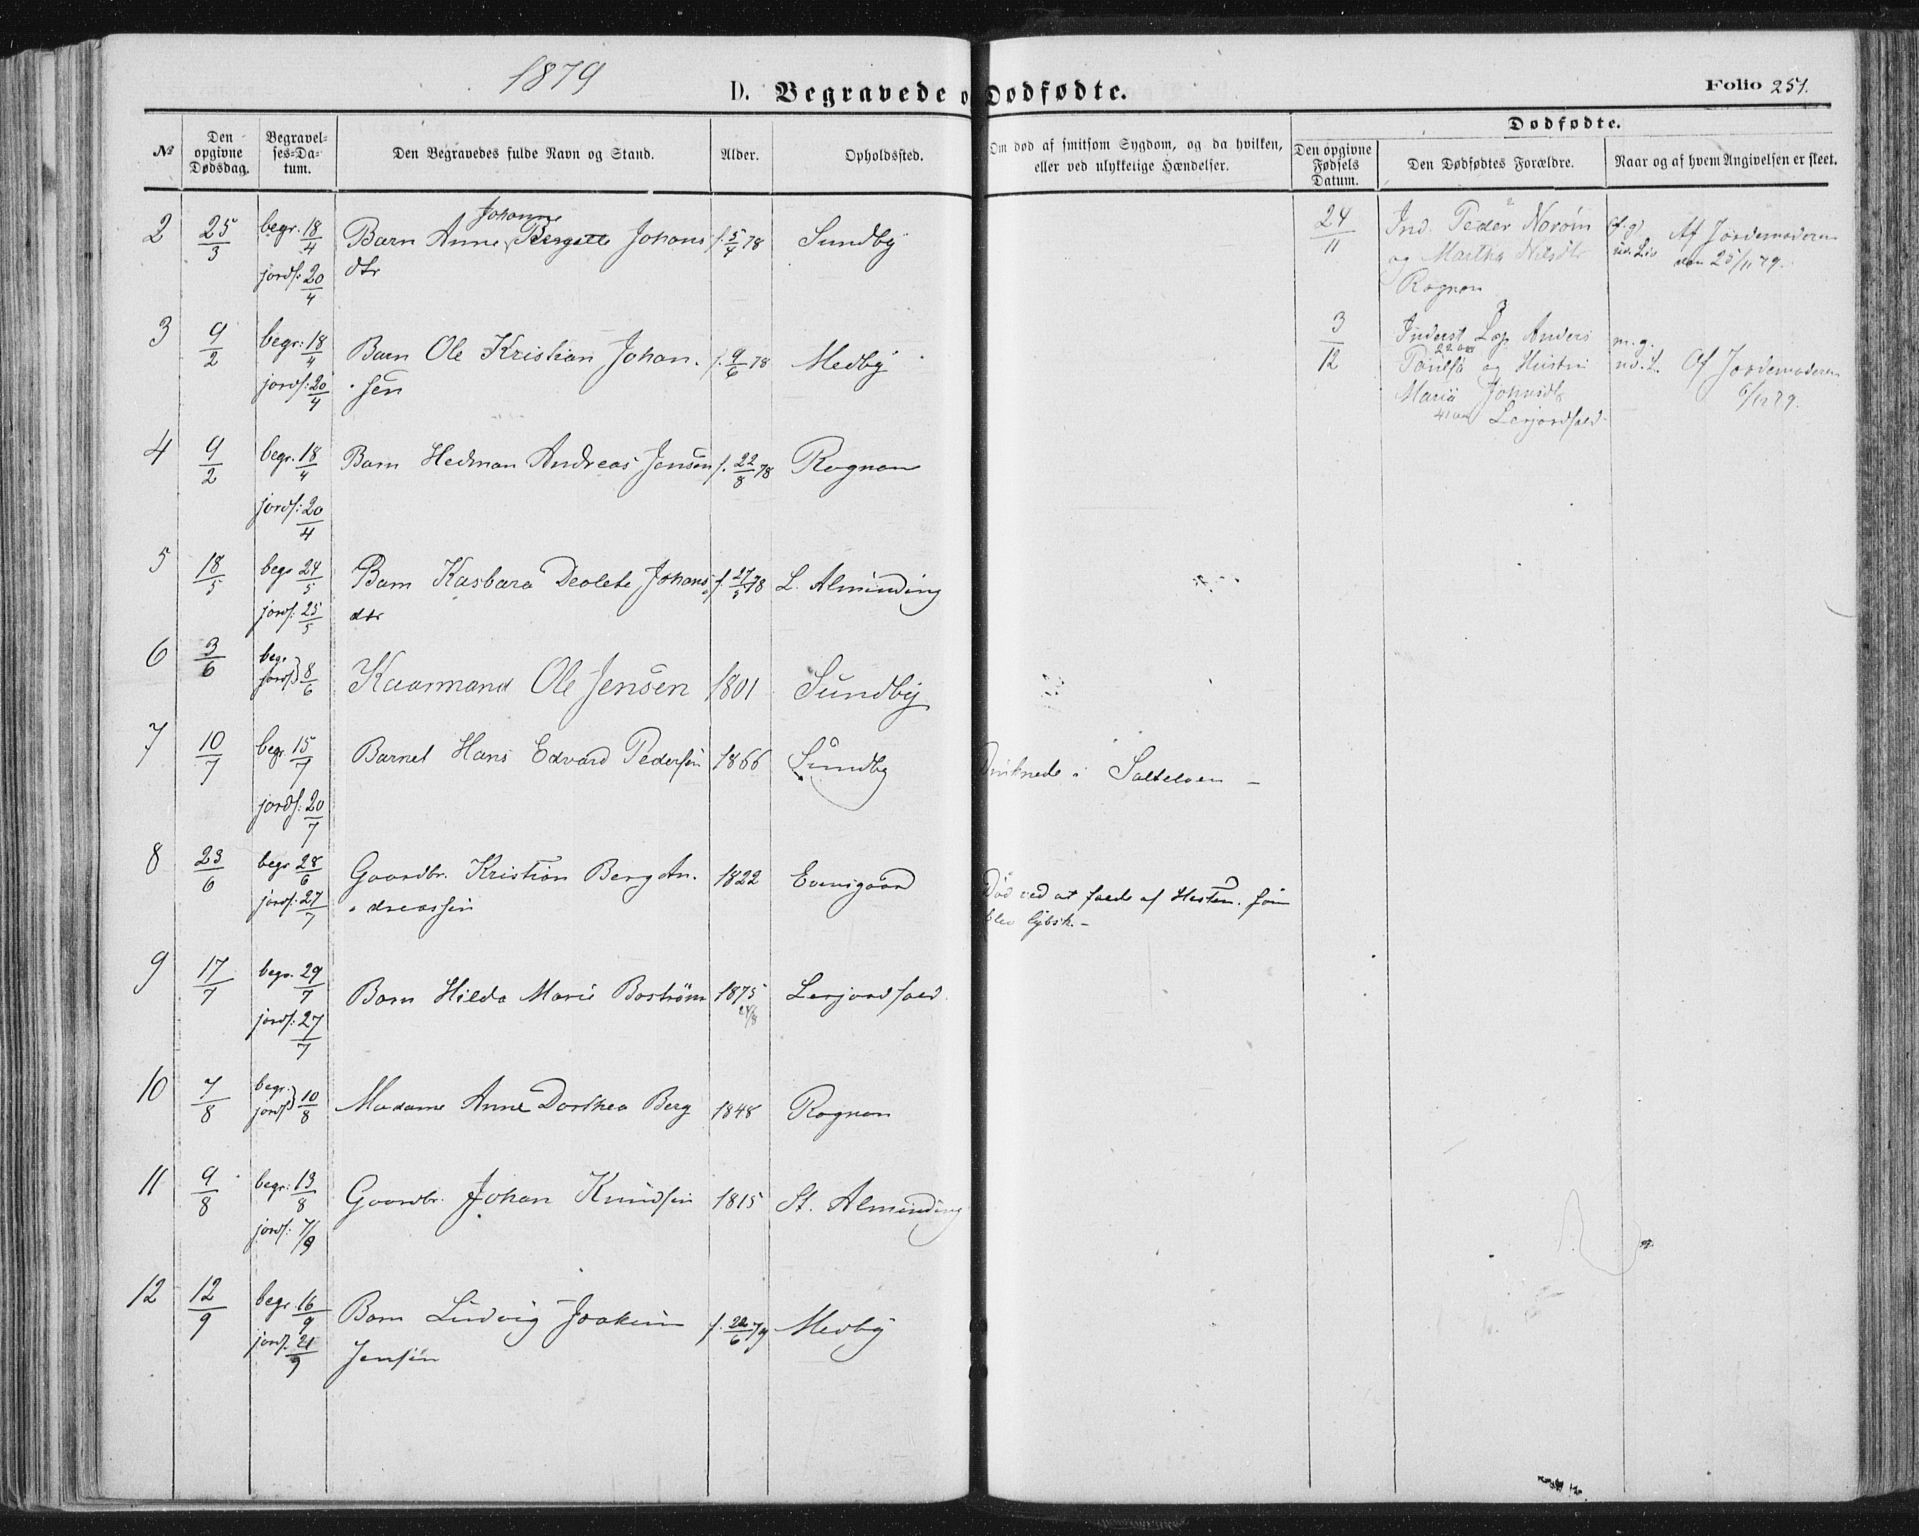 1879
D. Begravede o Dødfødte.
Folio 251.
No
Den opgivne Dødsdag.
Begravelses-Datum.
Den Begravedes fulde Navn og Stand.
Alder.
Opholdssted.
Om død af smitsom Sygdom, og da hvilken,
eller ved ulykkelige Hændelser.
Dødfødte.
Den opgivne Fødsels Datum.
Den Dødfødtes Forældre.
Naar og af hvem Angivelsen er skeet.
2 25/3 begr. 18/4 Barn Anne Johanne Bergette Johans f. 5/4 78 Sundby
jordf: 20/4 dtr
3 9/2 begr: 18/4 Barn Ole Kristian Johan- f. 9/6 78 Medby
jordf: 20/4 sen
4 9/2 begr. 18/4 Barn Hedman Andreas Jensen f. 22/8 78 Rognan
jordf: 20/4
5 18/5 begr 24/5 Barn Kasbara Deolete Johans f. 27/5 78 L. Alminding
jordf. 25/5 dtr
6 3/6 begr. jordf. 8/6 Kaarmand Ole Jensen 1801 Sundby
7 10/7 begr 15/7 Barnet Hans Edvard Pedersen 1866 Sundby
Druknede i Saltelven
jordf: 20/7
8 23/6 begr 28/6 Gaardbr. Kristian Berg An- 1822 Evensgaard
jordf. 27/7 dreassen
Død ved at falde af Hesten. som
blev
9 17/7 begr. 29/7 Barn Hilda Marie Boström 1875 24/8 Lerjordfald
jordf: 27/7
10 7/8 begr. jordf 10/8 Madame Anne Dorthea Berg 1848 Rognan
11 9/8 begr: 13/8 Gaardbr. Johan Knudsen 1815 St. Alminding
jordf: 7/9
12 12/9 begr. 16/9 Barn Ludvig Joakim f. 22/6 79 Medby
jordf. 21/9 Jensen
24/11 Ind. Peder Norøin
og Martha Nilsdtr
Rognan
Af Jordemoderen
den 25/11 79.
3/12 Inderst Anders
22 aar
og Hustru
Maria Johnsdtr
41 aar Lerjordfald
m. g.
Af Jordemoderen
6/12 79.